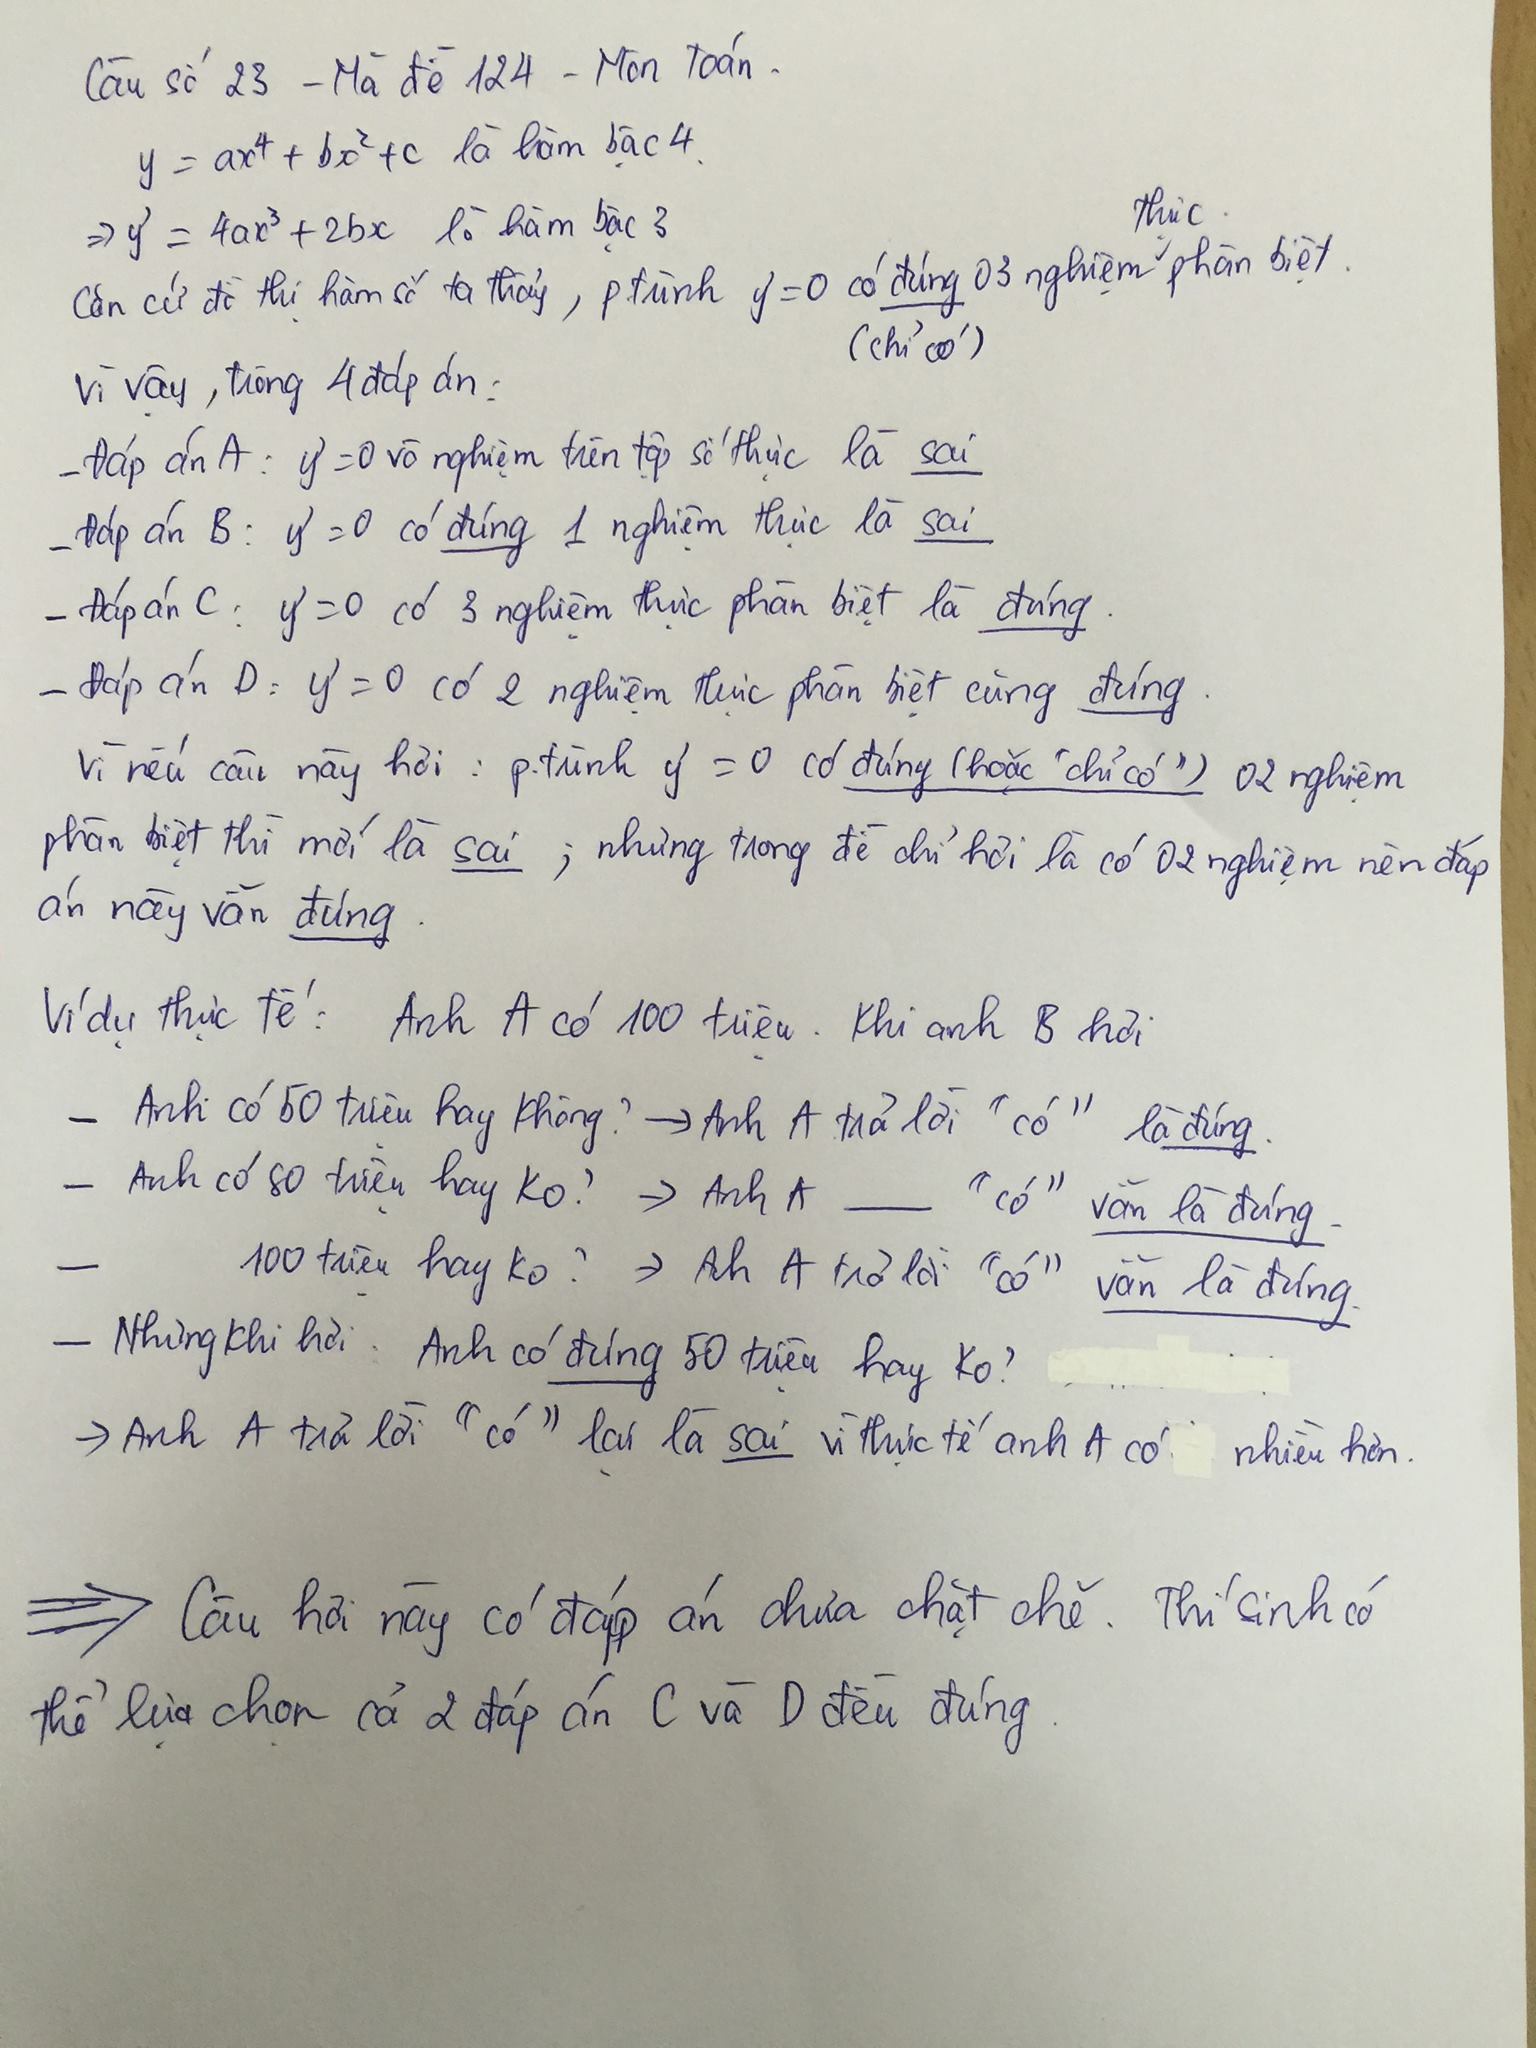 Câu số 23 - Mã đề 124 - Môn Toán.
y = ax⁴ + bx² + c là hàm bậc 4.
⇒ y' = 4ax³ + 2bx là hàm bậc 3
thực
Căn cứ đồ thị hàm số ta thấy, p.trình y' = 0 có đúng 03 nghiệm phân biệt.
(chỉ có)
Vì vậy, trong 4 đáp án:
- Đáp án A: y' = 0 vô nghiệm trên tập số thực là sai
- Đáp án B: y' = 0 có đúng 1 nghiệm thực là sai
- Đáp án C: y' = 0 có 3 nghiệm thực phân biệt là đúng.
- Đáp án D: y' = 0 có 2 nghiệm thực phân biệt cũng đúng.
Vì nếu câu này hỏi: p.trình y' = 0 có đúng (hoặc "chỉ có") 02 nghiệm
phân biệt thì mới là sai; nhưng trong đề chỉ hỏi là có 02 nghiệm nên đáp
án này vẫn đúng.
Ví dụ thực tế: Anh A có 100 triệu. Khi anh B hỏi
- Anh có 50 triệu hay không? → Anh A trả lời "có" là đúng.
- Anh có 80 triệu hay ko? → Anh A —— "có" vẫn là đúng.
— 100 triệu hay ko? → Anh A trả lời "có" vẫn là đúng.
- Nhưng khi hỏi: Anh có đúng 50 triệu hay ko?
→ Anh A trả lời "có" lại là sai vì thực tế anh A có nhiều hơn.
⇒ Câu hỏi này có đáp án chưa chặt chẽ. Thí sinh có
thể lựa chọn cả 2 đáp án C và D đều đúng.